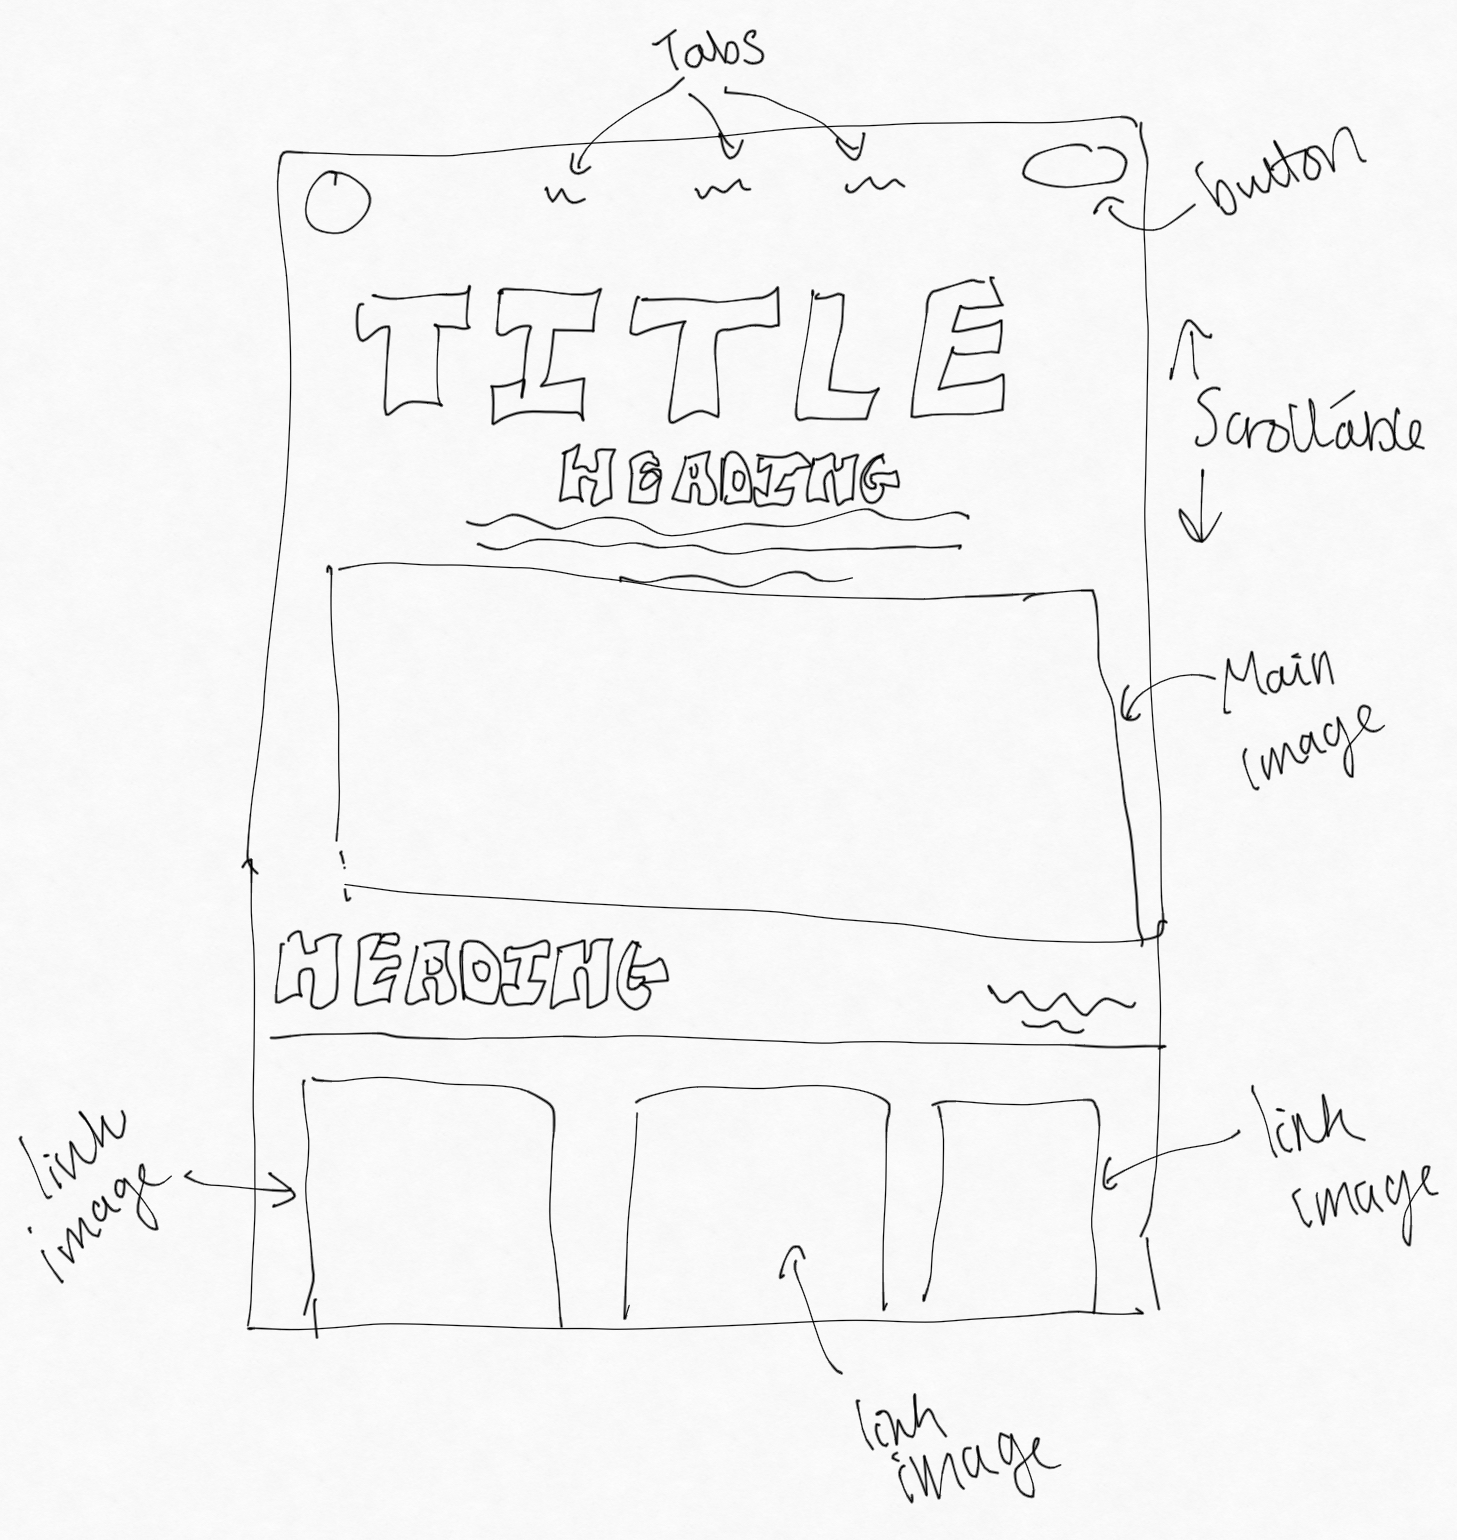 Tabs
button
TITLE
Scrollable
HEADING
Main
image
HEADING
link
image
link
image
link
image